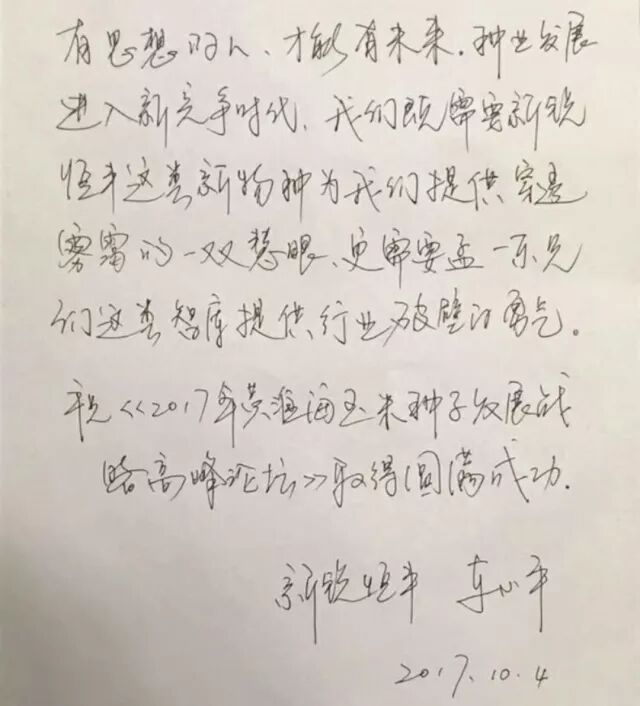 有思想的人、才能有未来.种业发展
进入新竞争时代、我们既需要新锐
恒丰这类新物种为我们提供穿透
雾霾的一双慧眼、更需要孟一东兄
们这类智库提供行业破壁的勇气。
祝《2017年黄淮海玉米种子发展战
略高峰论坛》取得圆满成功.
新锐恒丰 车心平
2017.10.4